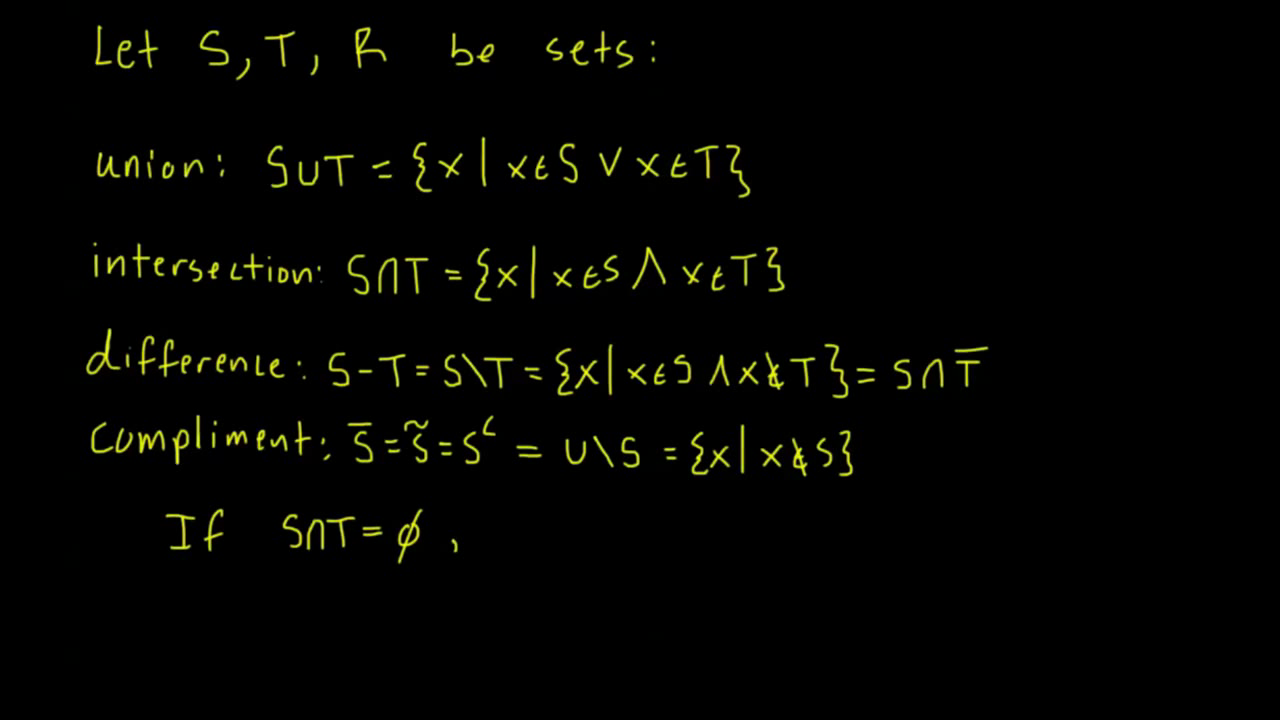 Let S, T, R be sets:
union: S∪T = {x | x∈S ∨ x∈T}
intersection: S∩T = {x | x∈S ∧ x∈T}
difference: S-T = S\T = {x | x∈S ∧ x∉T} = S∩T̅
Compliment: S̅ = S̃ = Sᶜ = U\S = {x | x∉S}
If S∩T = ∅ ,